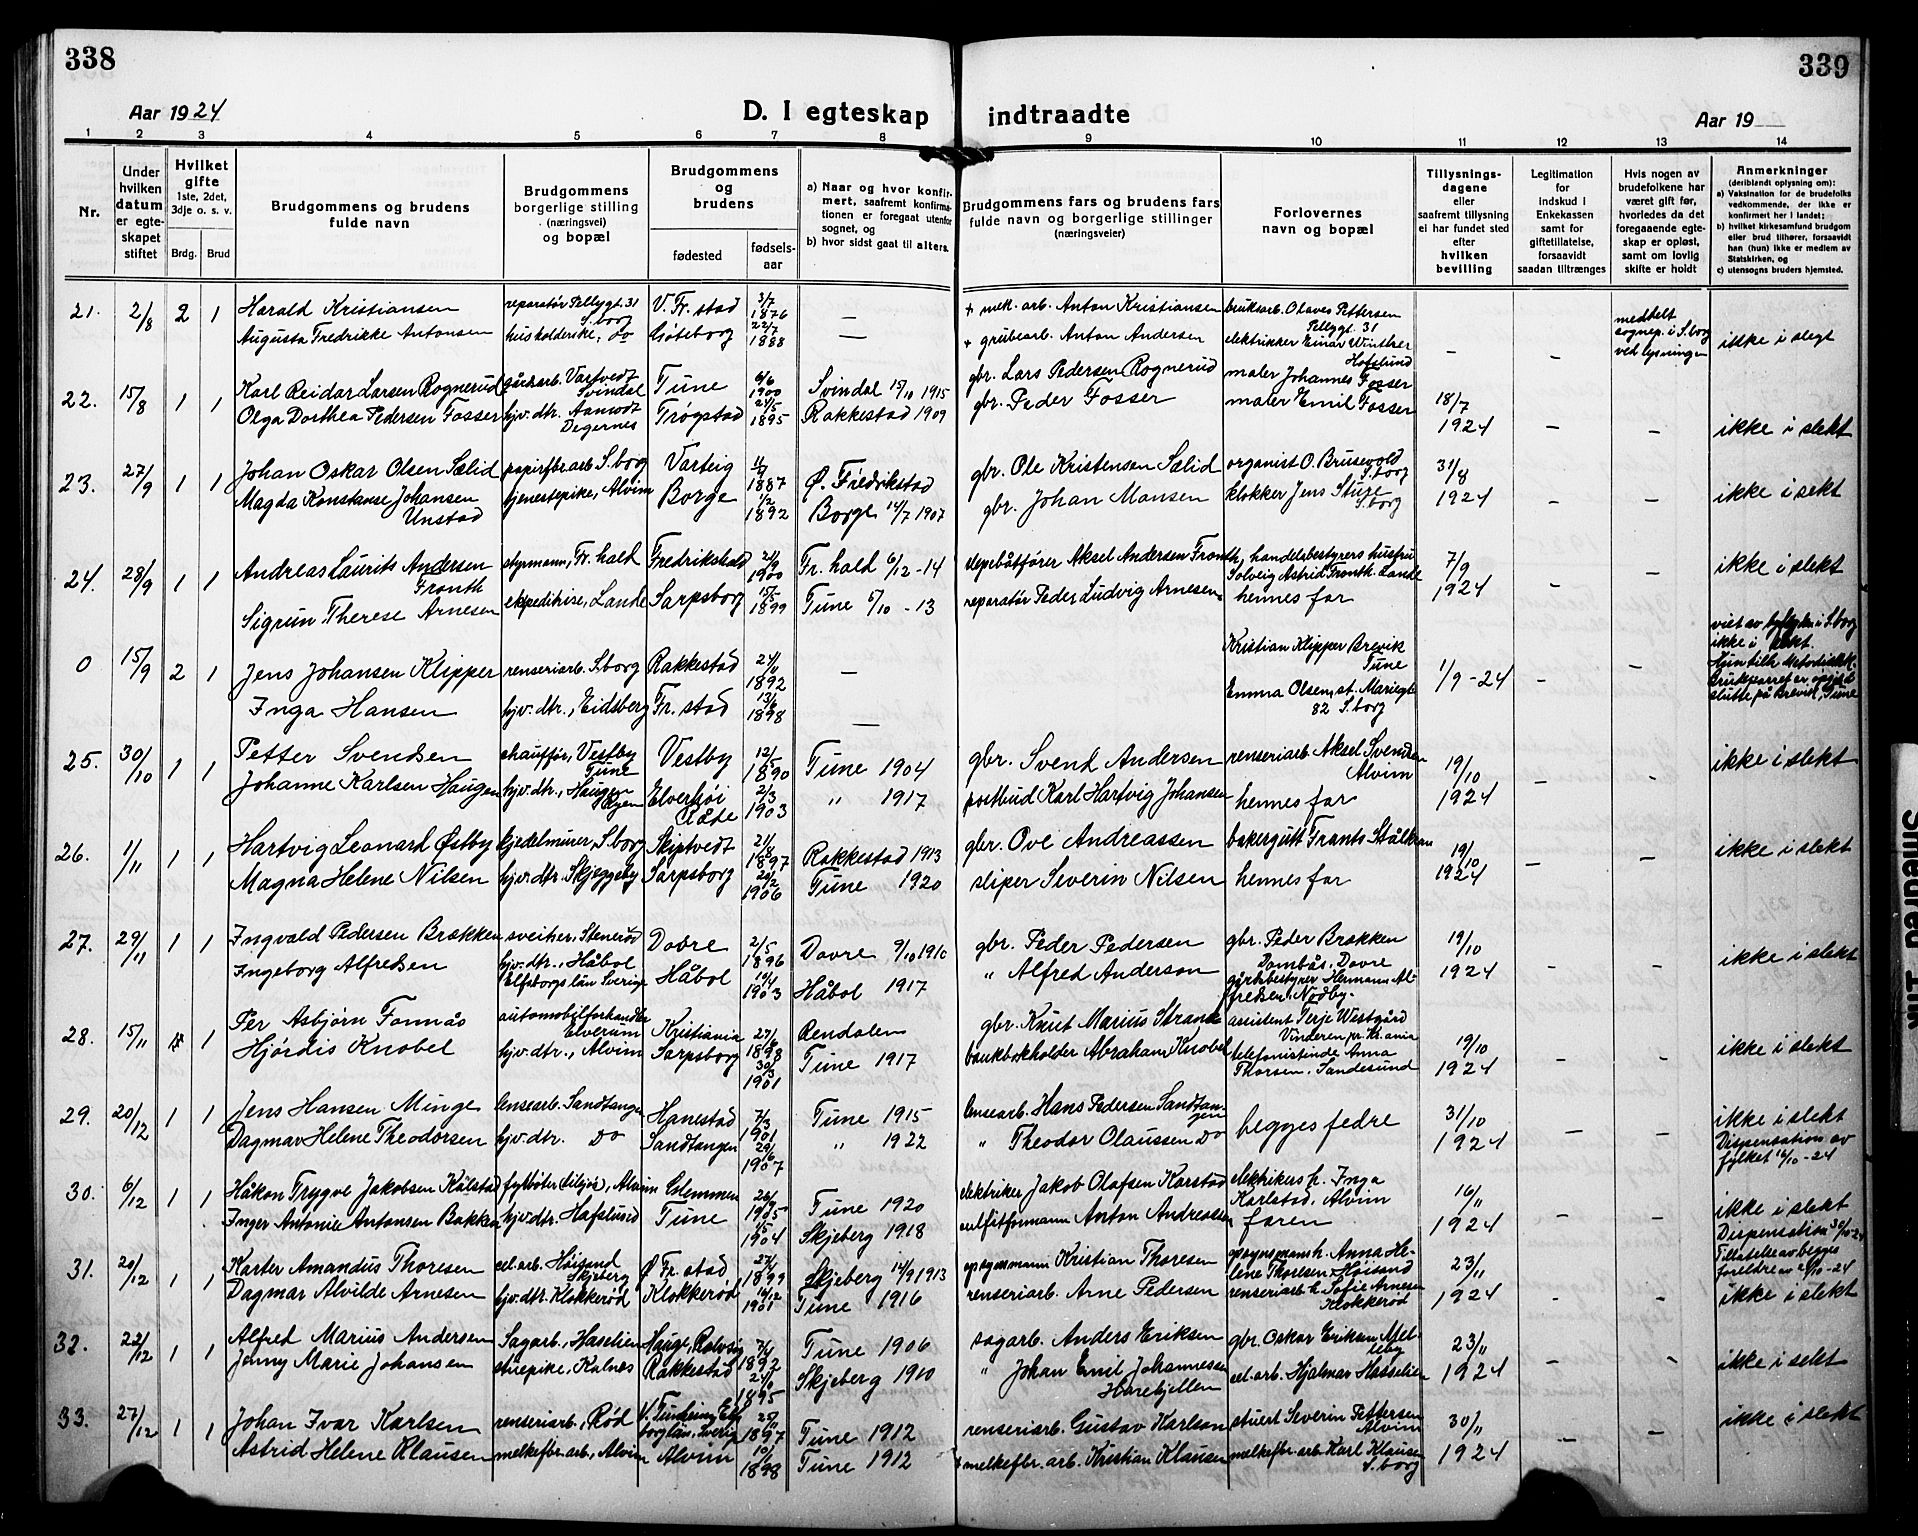 338
339
Aar 1924
D. I egteskap indtraadte
Aar 19
1 2 3 4 5 6 7 8 9 10 11 12 13 14
Nr.
Under hvilken datum er egteskapet stiftet
Hvilket gifte 1ste, 2det, 3dje o. s. v.
Brdg. Brud
Brudgommens og brudens fulde navn
Brudgommens borgerlige stilling (næringsvei) og bopæl
Brudgommens og brudens
fødested
fødselsaar
a) Naar og hvor konfirmert, saafremt konfirmationen er foregaat utenfor sognet, og
b) hvor sidst gaat til alters.
Brudgommens fars og brudens fars fulde navn og borgerlige stillinger (næringsveier)
Forlovernes navn og bopæl
Tillysningsdagene eller saafremt tillysning ei har fundet sted efter hvilken bevilling
Legitimation for indskud i Enkekassen samt for giftetillatelse, forsaavidt saadan tiltrænges
Hvis nogen av brudefolkene har været gift før, hvorledes da det foregaaende egteskap er opløst, samt om lovlig skifte er holdt
Anmerkninger (deriblandt oplysning om):
a) Vaksination for de brudefolks vedkommende, der ikke er konfirmert her i landet;
b) hvilket kirkesamfund brudgom eller brud tilhører, forsaavidt han (hun) ikke er medlem av Statskirken, og
c) utensogns bruders hjemsted.
21. 2/8 2 1 Harald Kristiansen reparatør Pellygt. 31 S.borg V. Fr.stad 3/7 1876 — + mek. arb. Anton Kristiansen bruksarb. Olaves Pettersen Pellygt. 31 — — meddelt sognep. i S.borg ved lysningen ikke i slegt
Augusta Fredrikke Antonsen husholderske, do Göteborg 22/7 1888 — + grubearb. Anton Andersen elektrikker Einar Winther Hafslund
22. 15/8 1 1 Karl Reidar Larsen Rognerud gårdsarb. Vartvedt Svindal Tune 6/6 1900 Svindal 15/10 1915 gbr. Lars Pedersen Rognerud maler Johannes Fosser 18/7 1924 — — ikke i slekt
Olga Dorthea Pedersen Fosser hjv. dtr. Aamodt Degernes Trøgstad 24/5 1895 Rakkestad 1909 gbr. Peder Fosser maler Emil Fosser
23. 27/9 1 1 Johan Oskar Olsen Sælid papirfbr.arb S.borg Varteig 1887 Ø. Fredrikstad gbr. Ole Kristensen Sælid organist O. Brusevold S.borg 31/8 1924 — — ikke i sekt
Magda Konstanse Johansen Unstad tjenestepike, Alvim Borge 1/2 1892 Borge 14/7 1907 gbr. Johan Mansen klokker Jens Stuje S.borg
24. 28/9 1 1 Andreas Laurits Andersen Fronth styrmann, Fr.hald Fredrikshald 21/9 1900 Fr.hald 6/12 -14 slepebåtfører Aksel Andersen Fronth, handelsbestyrers husfru Solveig Astrid Fronth. Lande 7/9 1924 — — ikke i slekt
Sigrun Therese Arnesen ekspeditrise, Lande Sarpsborg 15/5 1899 Tune 5/10 -13 reparatør Peder Ludvig Arnesen hennes far
0 15/9 2 1 Jens Johansen Klipper renseriarb. S.borg Rakkestad 24/11 1892 — Kristian Klipper Brevik Tune 1/9 -24 — — viet av i S.borg ikke i slekt.
Inga Hansen hjv. dtr., Eidsberg Fr.stad 13/6 1898 — Emma Olsen, st. Mariegt 82 S.borg Brukparret er slutte på Brevik, Tune
25. 30/10 1 1 Petter Svendsen chauffør, Vestby Tune Vestby 12/5 1890 Tune 1904 gbr. Svend Andersen renseriarb. Aksel Svendsen Alvim 19/10 1924 — — ikke i slekt
Johanne Karlsen Haugen hjv. dtr., Haugen Elverhøi Råde 2/3 1903 " 1917 postbud Karl Hartvig Johansen hennes far
26. 1/11 1 1 Hartvig Leonard Østby kjedelmurer, S.borg Skiptvedt 21/8 1897 Rakkestad 1913 gbr. Ove Andreassen bakergutt Frants Stålkran 19/10 1924 — — ikke i slekt
Magna Helene Nilsen hjv. dtr. Skjeggeby Sarpsborg 20/2 1906 Tune 1920 sliper Severin Nilsen hennes far
27. 29/11 1 1 Ingvald Pedersen Brækken sveiser, Stenerød Dovre 2/5 1896 Dovre 9/10 1910 gbr. Peder Pedersen gbr. Peder Brækken Dombås, Dovre 19/10 1924 — — ikke i slekt
Ingeborg Alfredsen hjv. dtr., Håbol Elfsborgs län Sverige Håbol 10/4 1903 Håbol 1917 " Alfred Anderson gårdsbestyrer Hermann Alfredsen, Nodby.
28. 15/11 1 Per Asbjørn Fonnås automobilforhandler Elverum Kristiania 27/6 1898 Rendalen gbr. Knut Marius Strand assistent Terje Westgård Vinderen pr. Kr.ania 19/10 1924 — — ikke i slekt
Hjørdis Knobel hjv. dtr., Alvim Sarpsborg 30/3 1901 Tune 1917 bankbokholder Abraham Knobel telefonistinde Anna Thorsen. Sandesund
29. 20/12 1 1 Jens Hansen Minge lensearb. Sandtangen Hanestad 7/3 1901 Tune 1915 lensearb. Hans Pedersen Sandtangen begges fedre 31/10 1924 — — ikke i slekt
Dagmar Helene Theodorsen hjv. dtr. Do Sandtangen 29/6 1907 " 1922 " Theodor Claussen Do Dispensation av fylket 16/10 -24
30. 6/12 1 1 Håkon Trygve Jakobsen Kålstad fyrbøter, Alvim Glemmen 26/9 1905 Tune 1920 elektriker Jakob Olafsen Karstad elektrikers h. Inga Karlstad, Alvim 16/11 1924 — — ikke i slekt
Inger Antonie Antonsen Bakken hjv. dtr. Hafslund Tune 1/5 1904 Skjeberg 1918 Anton Andresen faren Dispensation 30/10 -24 Tillatelse av begges foreldre av 21/10 -24
31. 20/12 1 1 Karter Amandus Thoresen cel. arb. Høisand Skjeberg Ø. Fr.stad 27/4 1899 Skjeberg 14/9 1913 opsynsmann Kristian Thoresen opsynsmans h. Anna Helene Thoresen. Høisand 23/11 1924 — — ikke i slekt
Dagmar Alvilde Arnesen hjv. dtr. Klokkerød Klokkerød 16/12 1901 Tune 1916 renseriarb. Arne Pedersen renseriarb. h. Sofie Arnesen Klokkerød
32. 22/12 1 1 Alfred Marius Andersen Sagarb., Haselien Hauge, Rolvsøy 7/4 1892 Tune 1906 sagarb. Anders Eriksen gbr. Oskar Eriksen Melleby 23/11 1924 — — ikke i selkt
Jenny Marie Johansen stuepike, Kalnes Rakkestad 24/10 1895 Skjeberg 1910 " Johan Emil Johannessen Harebjellen cel. arb. Hjalmar Hasselien
33. 27/12 1 1 Johan Ivar Karlsen renseriarb., Rød V. Elfsborg län, Sverige 25/11 1897 Tune 1912 renseriarb. Gustav Karlsen stuert Severin Pettersen Alvim 30/11 1924 — — ikke i slekt
Astrid Helene Klausen melkefbr. arb., Alvim Alvim 10/1 1898 Tune 1912 + melkefbr. arb. Kristian Klausen melkefbr. arb Karl Klausen S.borg